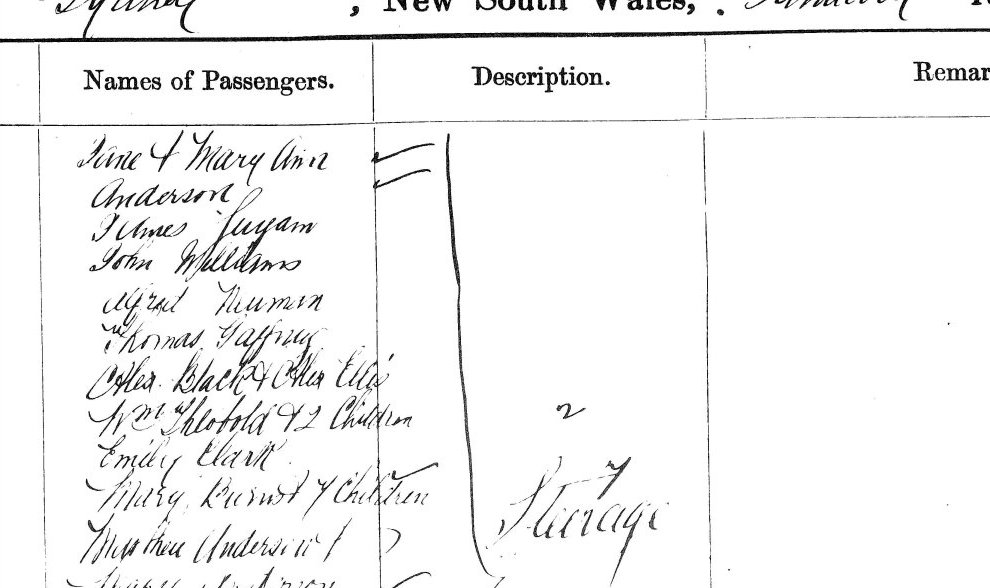 Sydney, New South Wales,
Names of Passengers. Description.
Jane & Mary Ann
Anderson
James
John Williams
Alfred Neuman
Thomas Gaffney
Alex. Black & Alex Ellis
Wm Theobold & 2 Children
2
Emily Clark
Mary Burns & 7 Children
7
Steerage
Matthew Anderson &